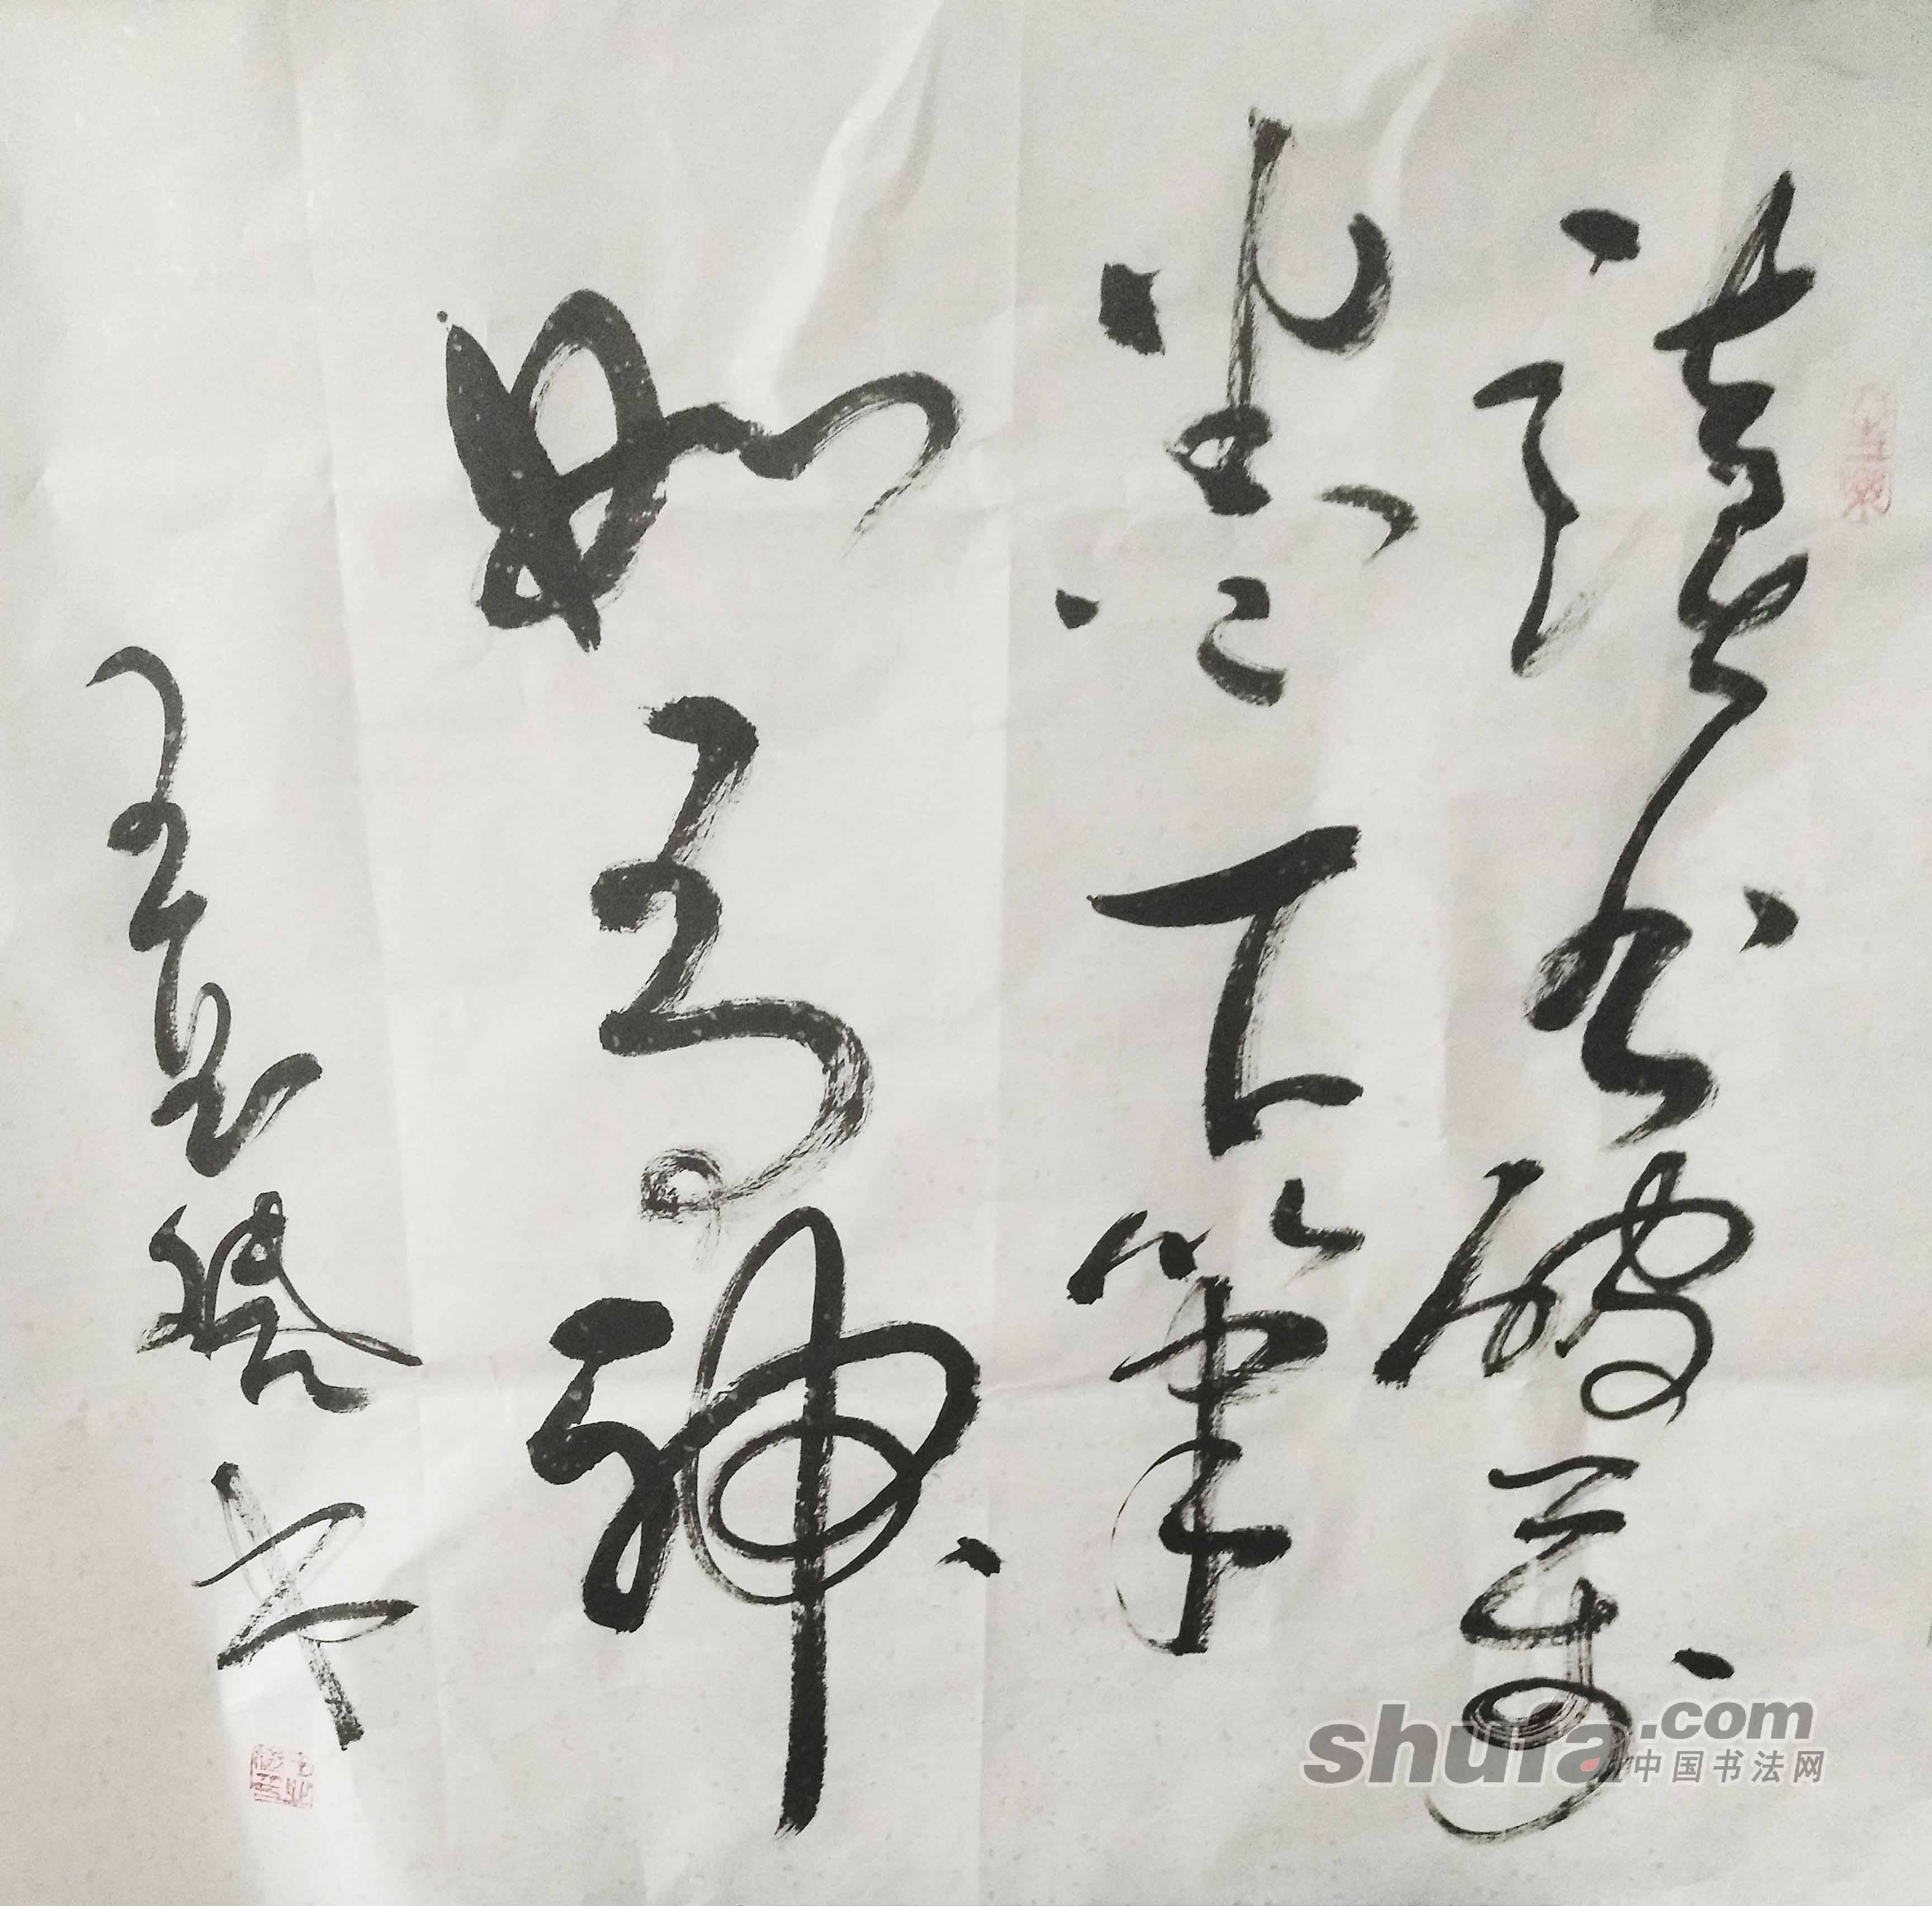 讀書破萬
卷下筆
如有神
shufa.com
中国书法网